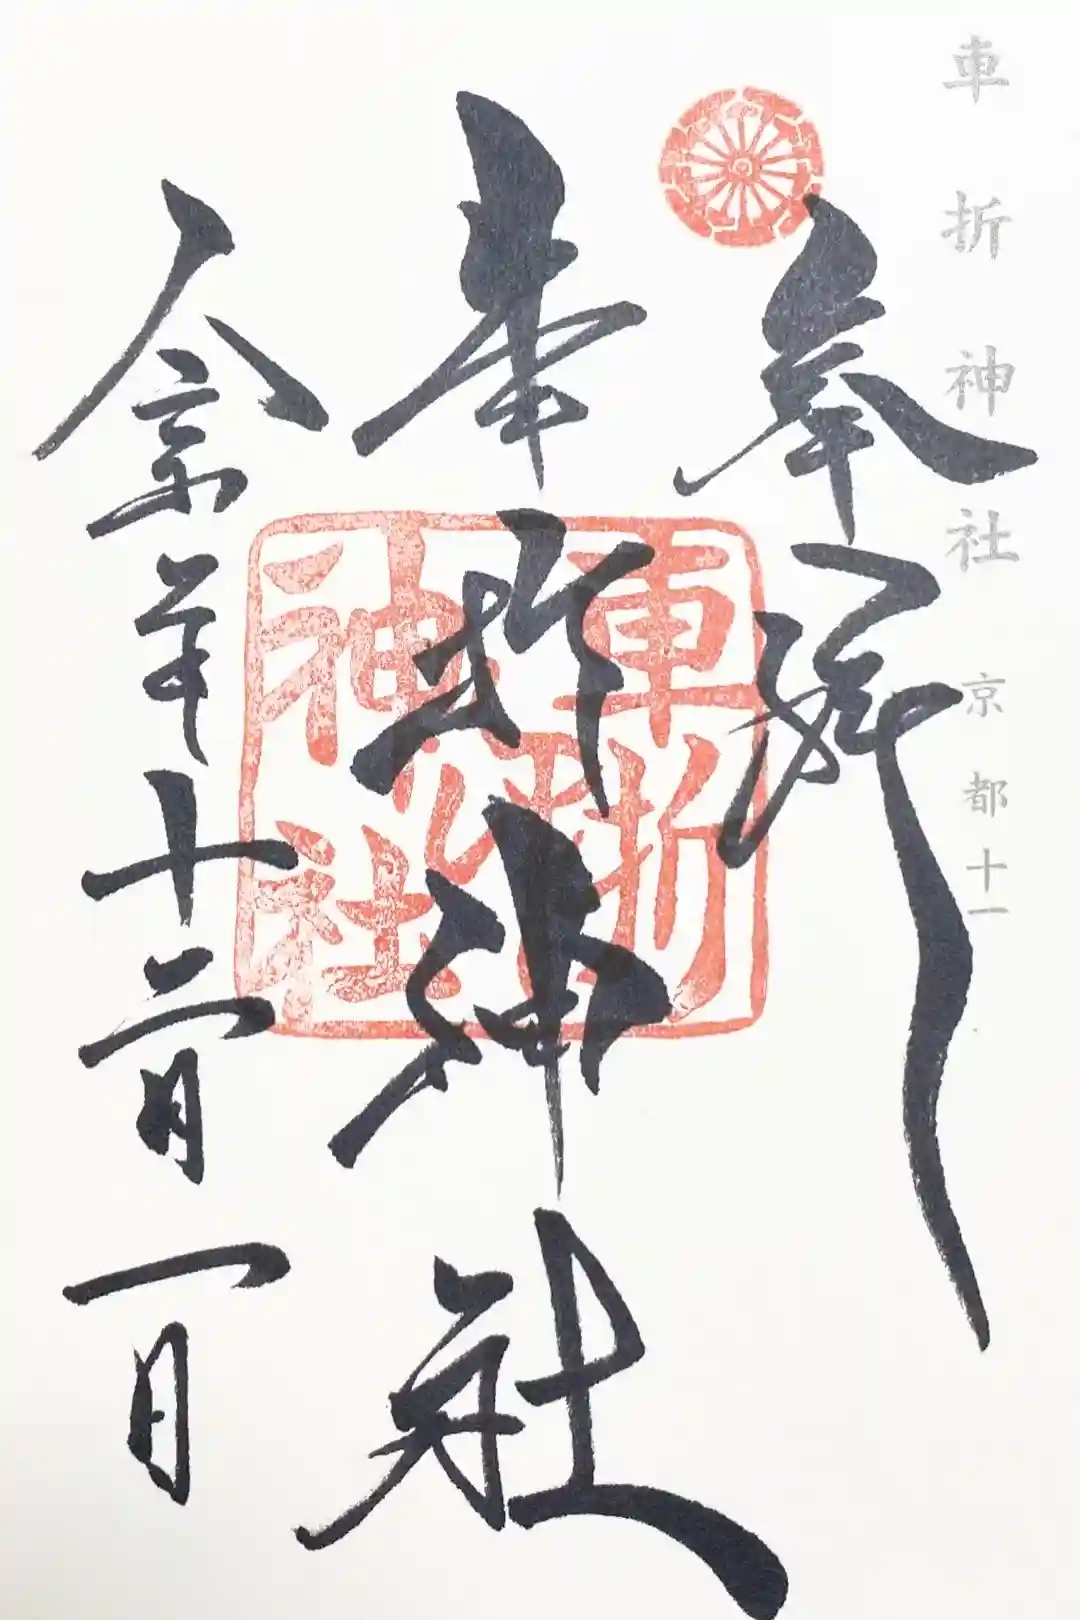 車折神社 京都十一
奉拝
車折神社
年十二月一日
車折
神社